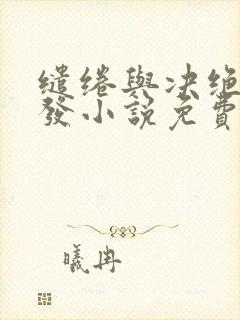 缱绻與决绝
發小説免費
曦冉